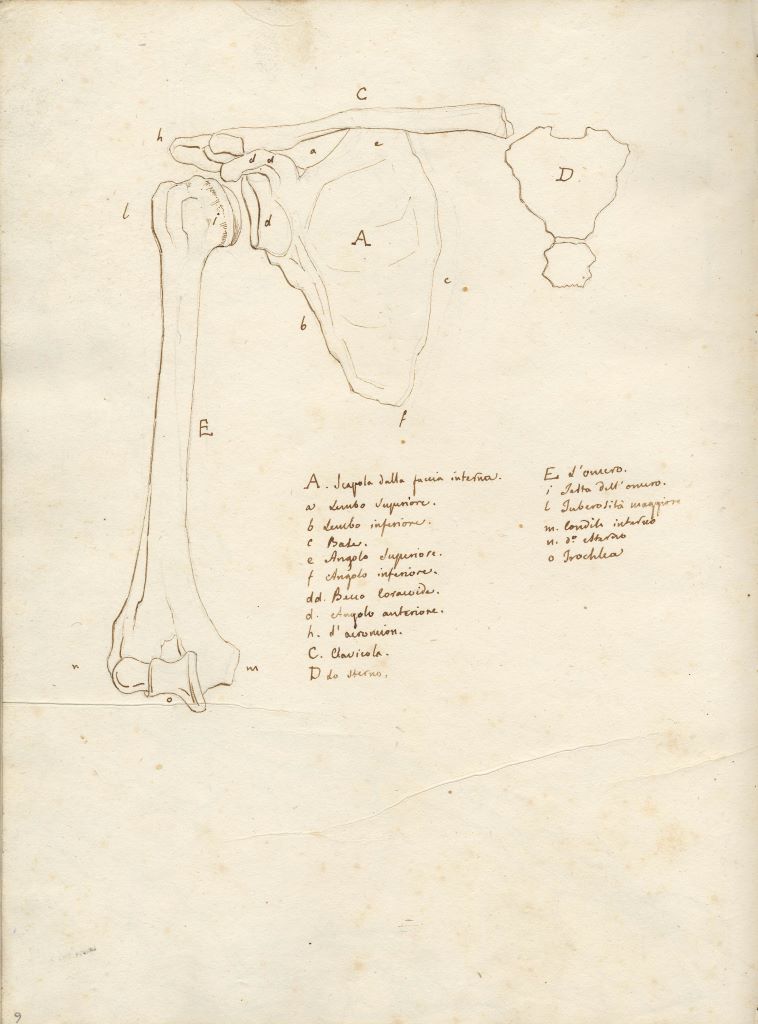 C
h
a
e
d d
D
l
i
d
A
c
b
f
E
A. Scapola dalla faccia interna.
a Lembo Superiore.
b Lembo inferiore.
c Base.
e Angolo Superiore.
f Angolo inferiore.
dd. Becco Coracoide.
d. Angolo anteriore.
h. L'acromion.
C. Clavicola.
D Lo sterno.
E L'omero.
i Testa dell'omero.
l Tuberosità maggiore
m. Condilo interno
n. do esterno
o Trochlea
n
m
o
9